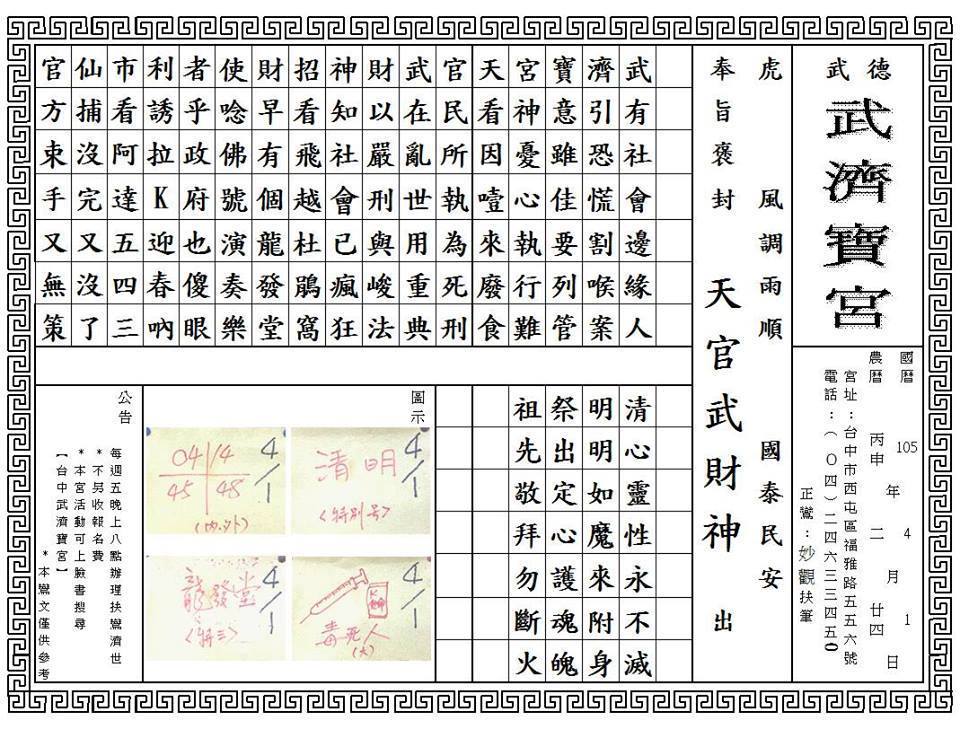 武德
武濟寶宮
國曆 105 年 4 月 1 日
農曆 丙申 二 廿四
宮址：台中市西屯區福雅路五五六號
電話：（0四）二四六三三四五0
正鸞：妙觀扶筆
虎 風調雨順 國泰民安
奉旨褒封 天官武財神 出
武有社會邊緣人
濟引恐慌割喉案
寶意雖佳要列管
宮神憂心執行難
天看因噎來廢食
官民所執為死刑
武在亂世用重典
財以嚴刑與峻法
神知社會已瘋狂
招看飛越杜鵑窩
財早有個龍發堂
使唸佛號演奏樂
者乎政府也傻眼
利誘拉K迎春吶
市看阿達五四三
仙捕沒完又沒了
官方束手又無策
清心靈性永不滅
明明如魔來附身
祭出定心護魂魄
祖先敬拜勿斷火
圖示
清明 4/1
<特別號>
04 14 4/1
45 48
(內.外)
4/1
毒死人
(大)
龍發堂 4/1
<特三>
公告
每週五晚上八點辦理扶鸞濟世
*不另收報名費
*本宮活動可上臉書搜尋
【台中武濟寶宮】
*本鸞文僅供參考